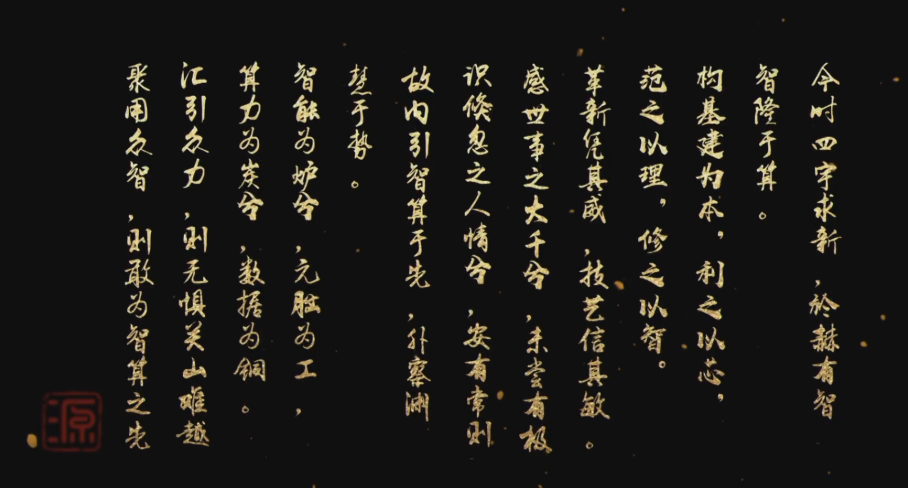 今时四宇求新，於赫有智
智隆于算。
构基建为本，利之以芯，
范之以理，修之以智。
革新凭其威，技艺信其敏。
感世事之大千兮，未尝有极
识倏忽之人情兮，安有常则
故内引智算于先，外察渊
慧于势。
智能为炉兮，元脑为工，
算力为炭兮，数据为铜。
汇引众力，则无惧关山难越
聚用众智，则敢为智算之先
源